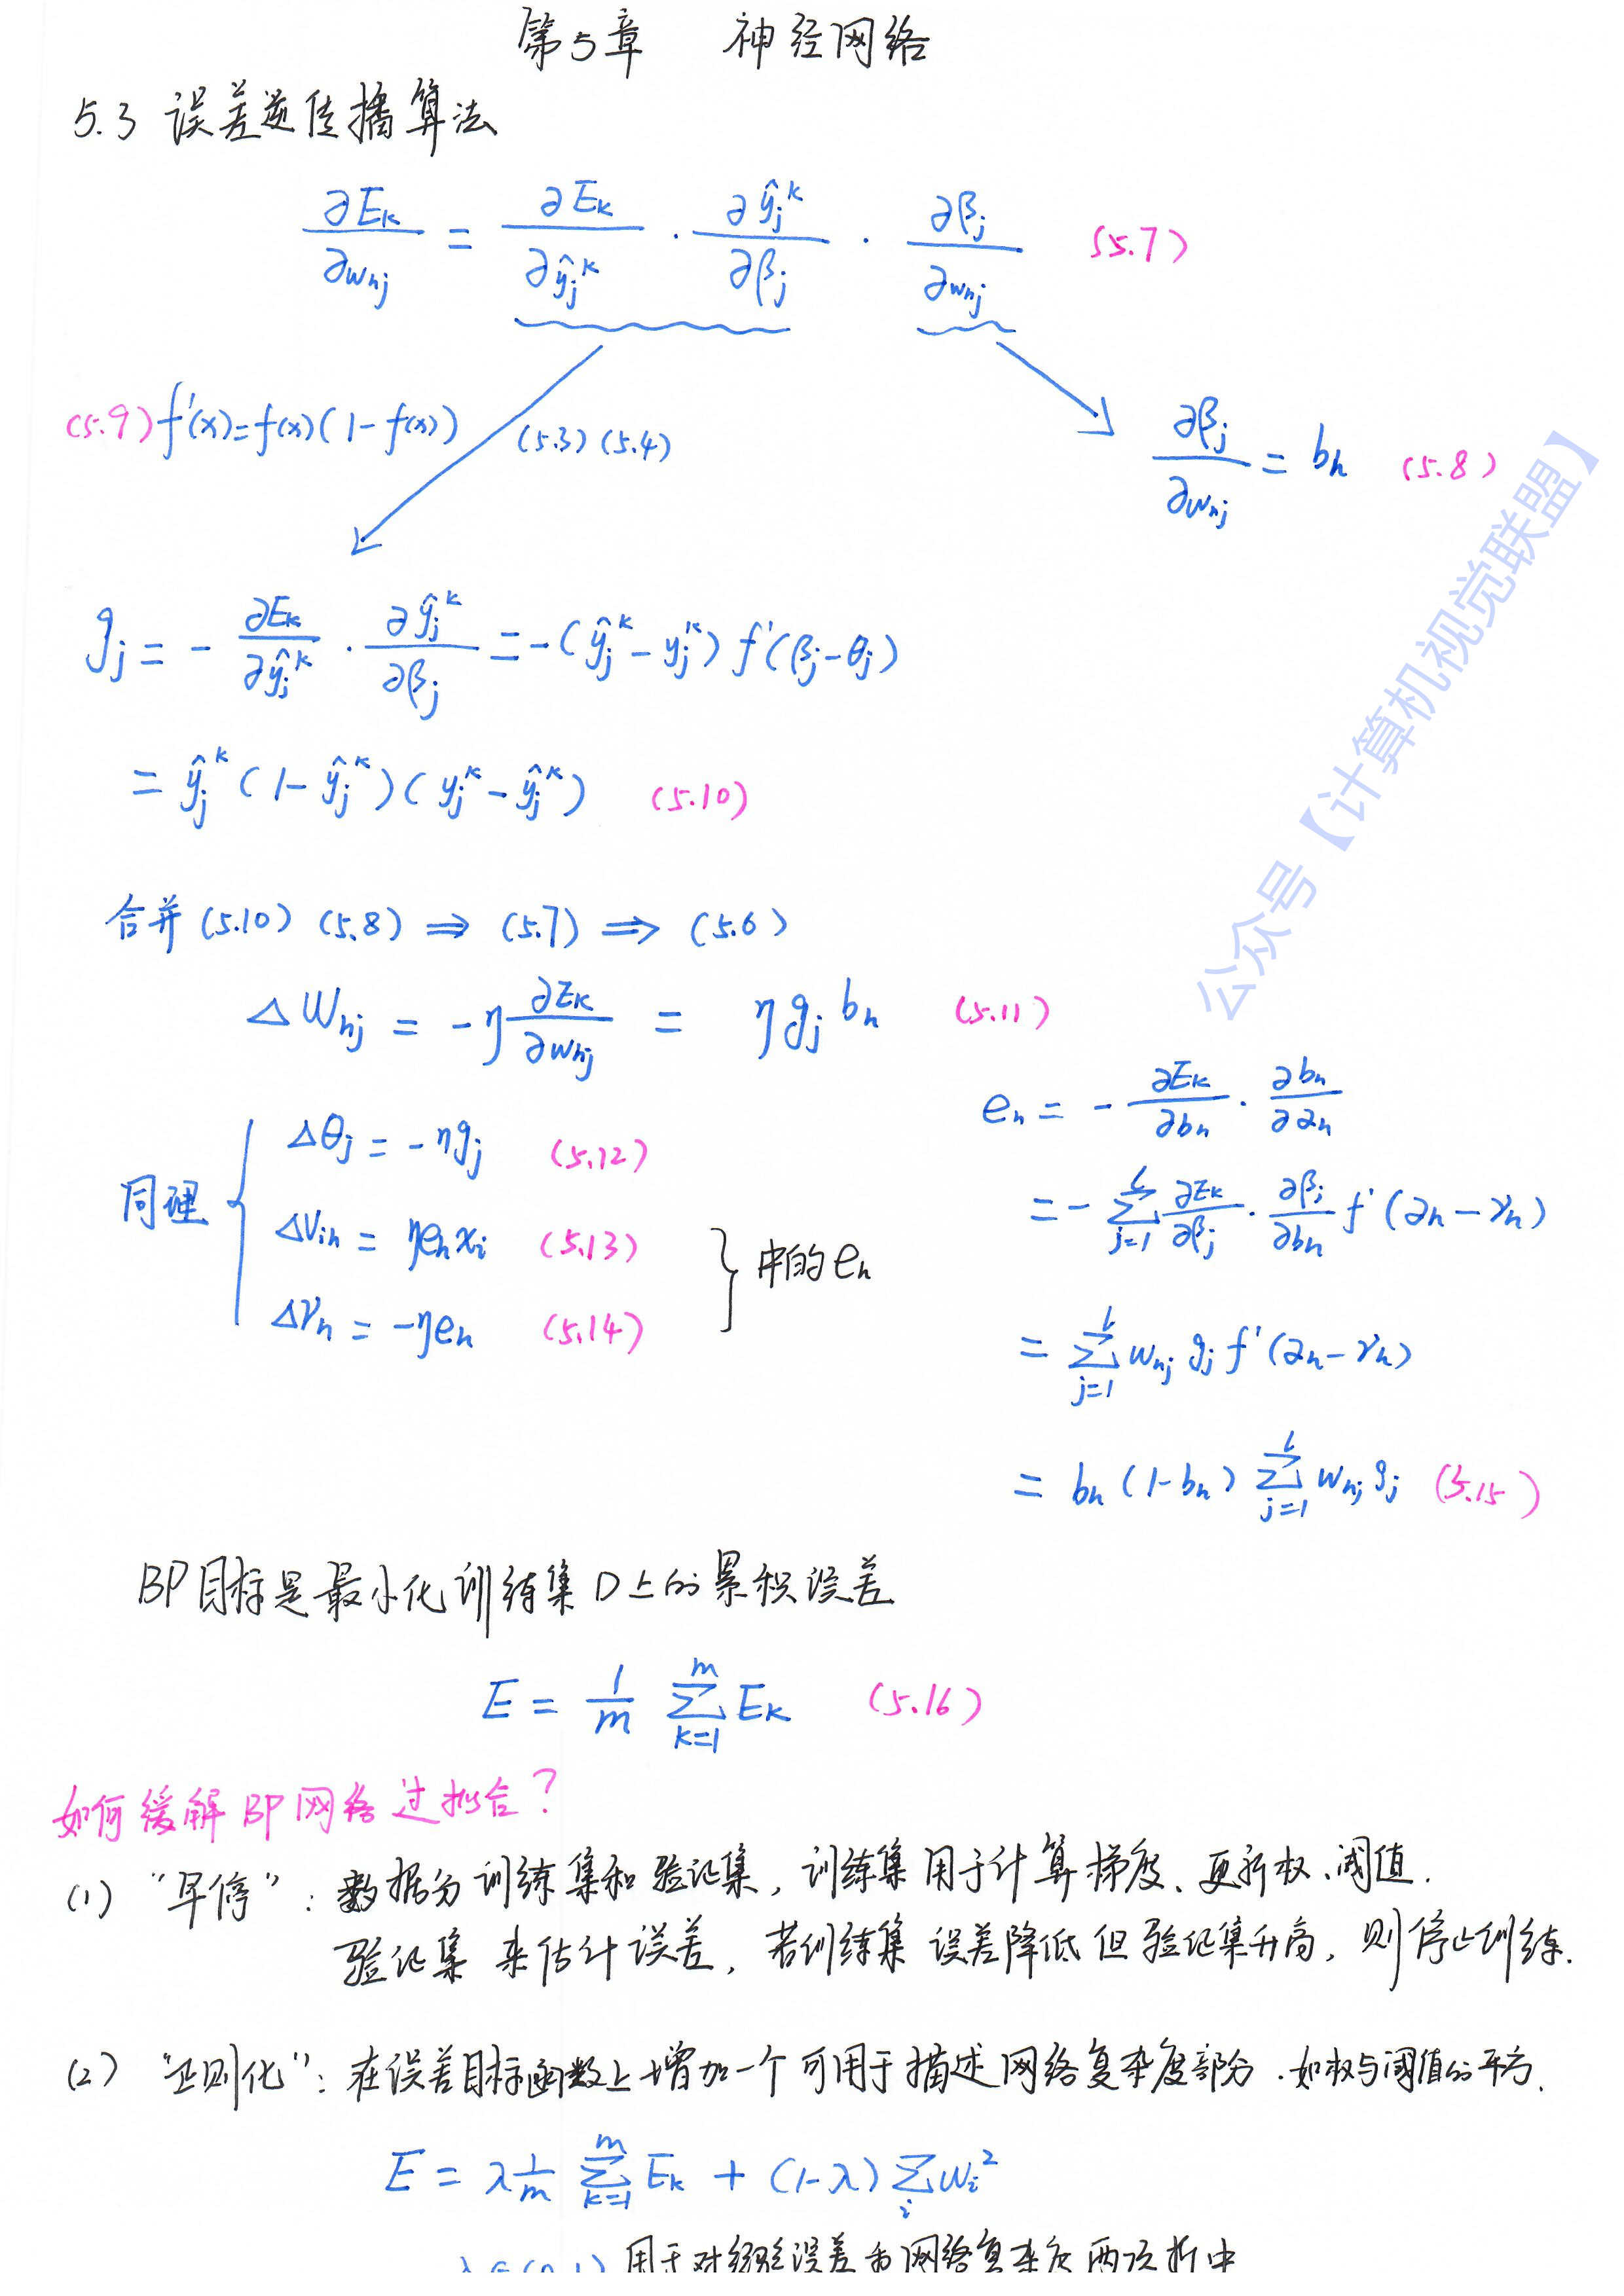 第5章 神经网络
5.3 误差逆传播算法
∂E_k/∂w_hj = ∂E_k/∂ŷ_j^k · ∂ŷ_j^k/∂β_j · ∂β_j/∂w_hj (5.7)
(5.9) f'(x)=f(x)(1-f(x)) (5.3) (5.4)
∂β_j/∂w_hj = b_h (5.8)
g_j = - ∂E_k/∂ŷ_j^k · ∂ŷ_j^k/∂β_j = -(ŷ_j^k - y_j^k) f'(β_j-θ_j)
= ŷ_j^k (1-ŷ_j^k)(y_j^k - ŷ_j^k) (5.10)
合并 (5.10) (5.8) ⇒ (5.7) ⇒ (5.6)
ΔW_hj = -η ∂E_k/∂w_hj = η g_j b_h (5.11)
同理
Δθ_j = -ηg_j (5.12)
Δv_ih = ηe_h x_i (5.13)
Δγ_h = -ηe_h (5.14)
中的 e_h
e_h = - ∂E_k/∂b_h · ∂b_h/∂α_h
= - ∑_{j=1}^{l} ∂E_k/∂β_j · ∂β_j/∂b_h f'(α_h-γ_h)
= ∑_{j=1}^{l} w_hj g_j f'(α_h-γ_h)
= b_h (1-b_h) ∑_{j=1}^{l} w_hj g_j (5.15)
BP目标是最小化训练集D上的累积误差
E = 1/m ∑_{k=1}^{m} E_k (5.16)
如何缓解BP网络过拟合?
(1) “早停”: 数据分训练集和验证集, 训练集用于计算梯度、更新权、阈值.
验证集来估计误差, 若训练集误差降低但验证集升高, 则停止训练.
(2) “正则化”: 在误差目标函数上增加一个可用于描述网络复杂度部分.如权与阈值的平方.
E = λ 1/m ∑_{k=1}^{m} E_k + (1-λ) ∑_i w_i^2
λ∈(0,1) 用于对经验误差和网络复杂度两项折中
公众号【计算机视觉联盟】